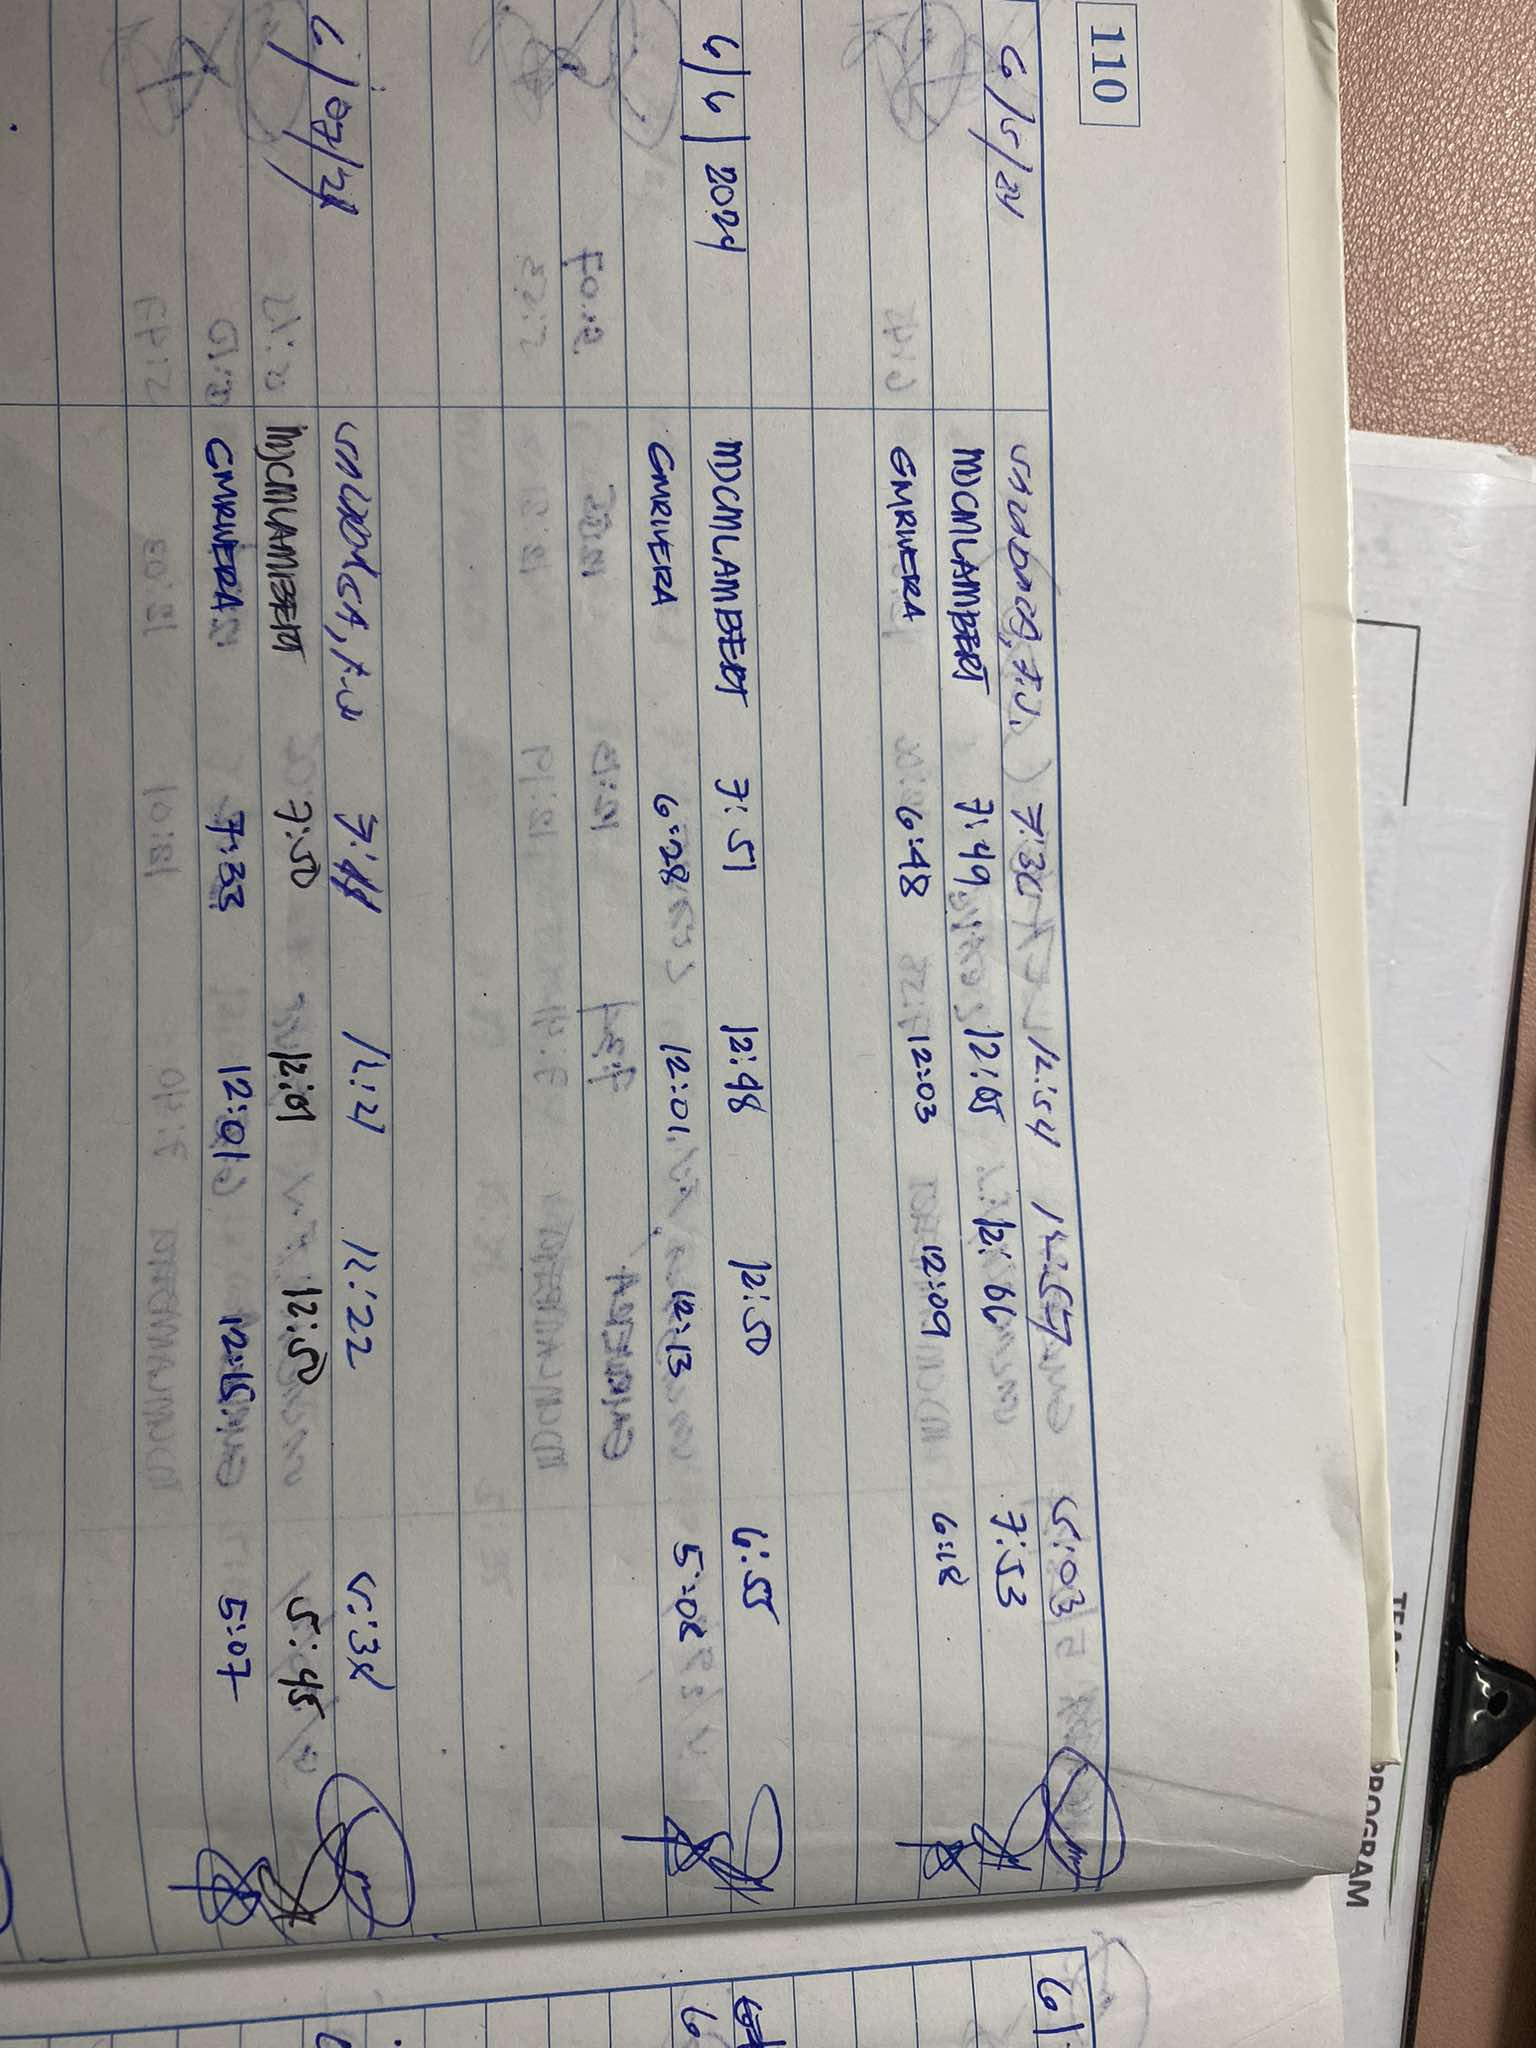 110
6/5/24 7:30 12:54 12:57 5:03
MDCMLAMBERT 7:49 12:05 12:06 7:53
GMRIVERA 6:48 12:03 12:09 6:18
6/6/2024 MDCMLAMBERT 7:51 12:48 12:50 6:55
GMRIVERA 6:28 12:01 12:13 5:08
6/07/24 12:21 12:22 5:38
MDCMLAMBERT 7:50 12:01 12:50 5:45
GMRIVERA 7:33 12:01 12:15 5:07
PROGRAM